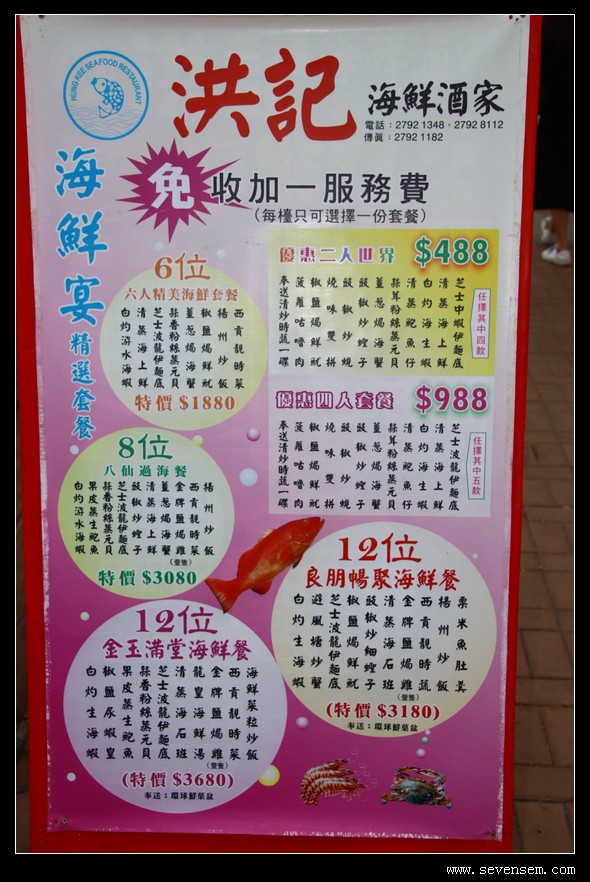 HUNG KEE SEAFOOD RESTAURANT
洪記
海鮮酒家
電話：2792 1348・2792 8112
傳真：2792 1182
免收加一服務費
（每檯只可選擇一份套餐）
海鮮宴精選套餐
6位
六人精美海鮮套餐
西貢靚時菜
楊州炒飯
椒鹽焗鮮魷
薑葱焗海蟹
蒜香粉絲蒸元貝
芝士波龍伊麵底
清蒸海上鮮
白灼游水海蝦
特價 $1880
優惠二人世界 $488
任擇其中四款
芝士中蝦伊麵底
清蒸海上鮮
白灼海生蝦
清蒸鮑魚仔
蒜茸粉絲蒸元貝
薑葱焗海蟹
豉椒炒蟶子
豉椒炒蜆
燒味雙拼
椒鹽焗鮮魷
菠蘿咕嚕肉
奉送清炒時蔬一碟
優惠四人套餐 $988
任擇其中五款
芝士波龍伊麵底
清蒸海上鮮
白灼海生蝦
清蒸鮑魚仔
蒜茸粉絲蒸元貝
薑葱焗海蟹
豉椒炒蟶子
豉椒炒蜆
燒味雙拼
椒鹽焗鮮魷
菠蘿咕嚕肉
奉送清炒時蔬一碟
8位
八仙過海餐
楊州炒飯
西貢靚時菜
金牌鹽焗雞（壹隻）
薑葱焗海蟹
清蒸海上鮮
豉椒炒蟶子
芝士波龍伊麵底
蒜香粉絲蒸元貝
果皮蒸生鮑魚
白灼游水海蝦
特價 $3080
12位
良朋暢聚海鮮餐
粟米魚肚羹
楊州炒飯
西貢靚時蔬
金牌鹽焗雞（壹隻）
清蒸海石班
豉椒炒細蟶子
椒鹽焗鮮魷
芝士波龍伊麵底
避風塘炒蟹
白灼生海蝦
（特價 $3180）
奉送：環球鮮菓盆
12位
金玉滿堂海鮮餐
海鮮菜粒炒飯
西貢靚時菜
金牌鹽焗雞（壹隻）
龍皇海鮮湯
清蒸海石班
芝士波龍伊麵底
蒜香粉絲蒸元貝
果皮蒸生鮑魚
椒鹽瀨尿蝦皇
白灼生海蝦
（特價 $3680）
奉送：環球鮮菓盆
www.sevensem.com